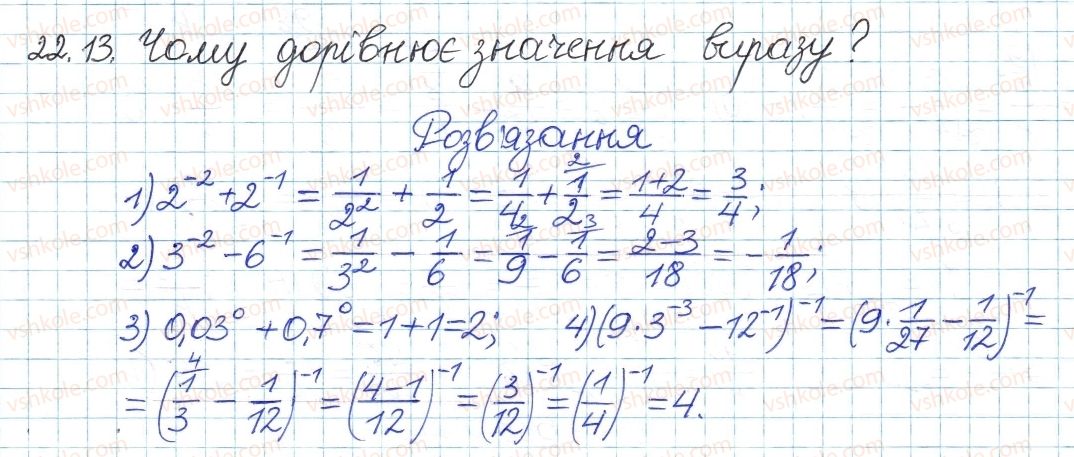 22.13. Чому дорівнює значення виразу?
Розв'язання
1) 2⁻² + 2⁻¹ = 1/2² + 1/2 = 1/4 + 1/2 (2 = (1+2)/4 = 3/4;
2) 3⁻² - 6⁻¹ = 1/3² - 1/6 = 1/9 (2 - 1/6 (3 = (2-3)/18 = -1/18;
3) 0,03⁰ + 0,7⁰ = 1 + 1 = 2; 4) (9·3⁻³ - 12⁻¹)⁻¹ = (9·1/27 - 1/12)⁻¹ =
= (1/3 (4 - 1/12)⁻¹ = ((4-1)/12)⁻¹ = (3/12)⁻¹ = (1/4)⁻¹ = 4.